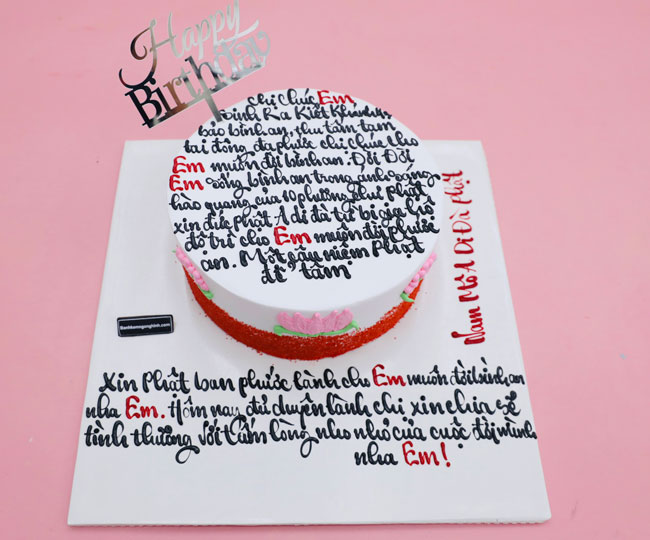 Happy
Birthday
Chị chúc Em,
Đinh Ra Kiết Khumlun
bảo bình an, thu tâm tam
tai đông đa phước chị chúc cho
Em muôn đời bình an. Đời Đời
Em sống bình an trong ánh sáng
hào quang của 10 phương chư Phật
xin đức Phật A di đà từ bi gia hộ
độ trì cho Em muôn đời phước
an. Một câu niệm Phật
để tâm
Nam Mô A Di Đà Phật
Banhkemngonghinh.com
Xin Phật ban phước lành cho Em muôn đời bình an
nha Em. Hôm nay đủ duyên lành chị xin chia sẻ
tình thương với tấm lòng nho nhỏ của cuộc đời mình
nha Em!